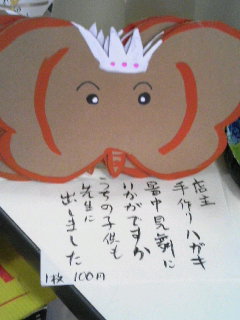 店主
手作りハガキ
暑中見舞に
いかがですか
うちの子供も
先生に
出しました
1枚 100円